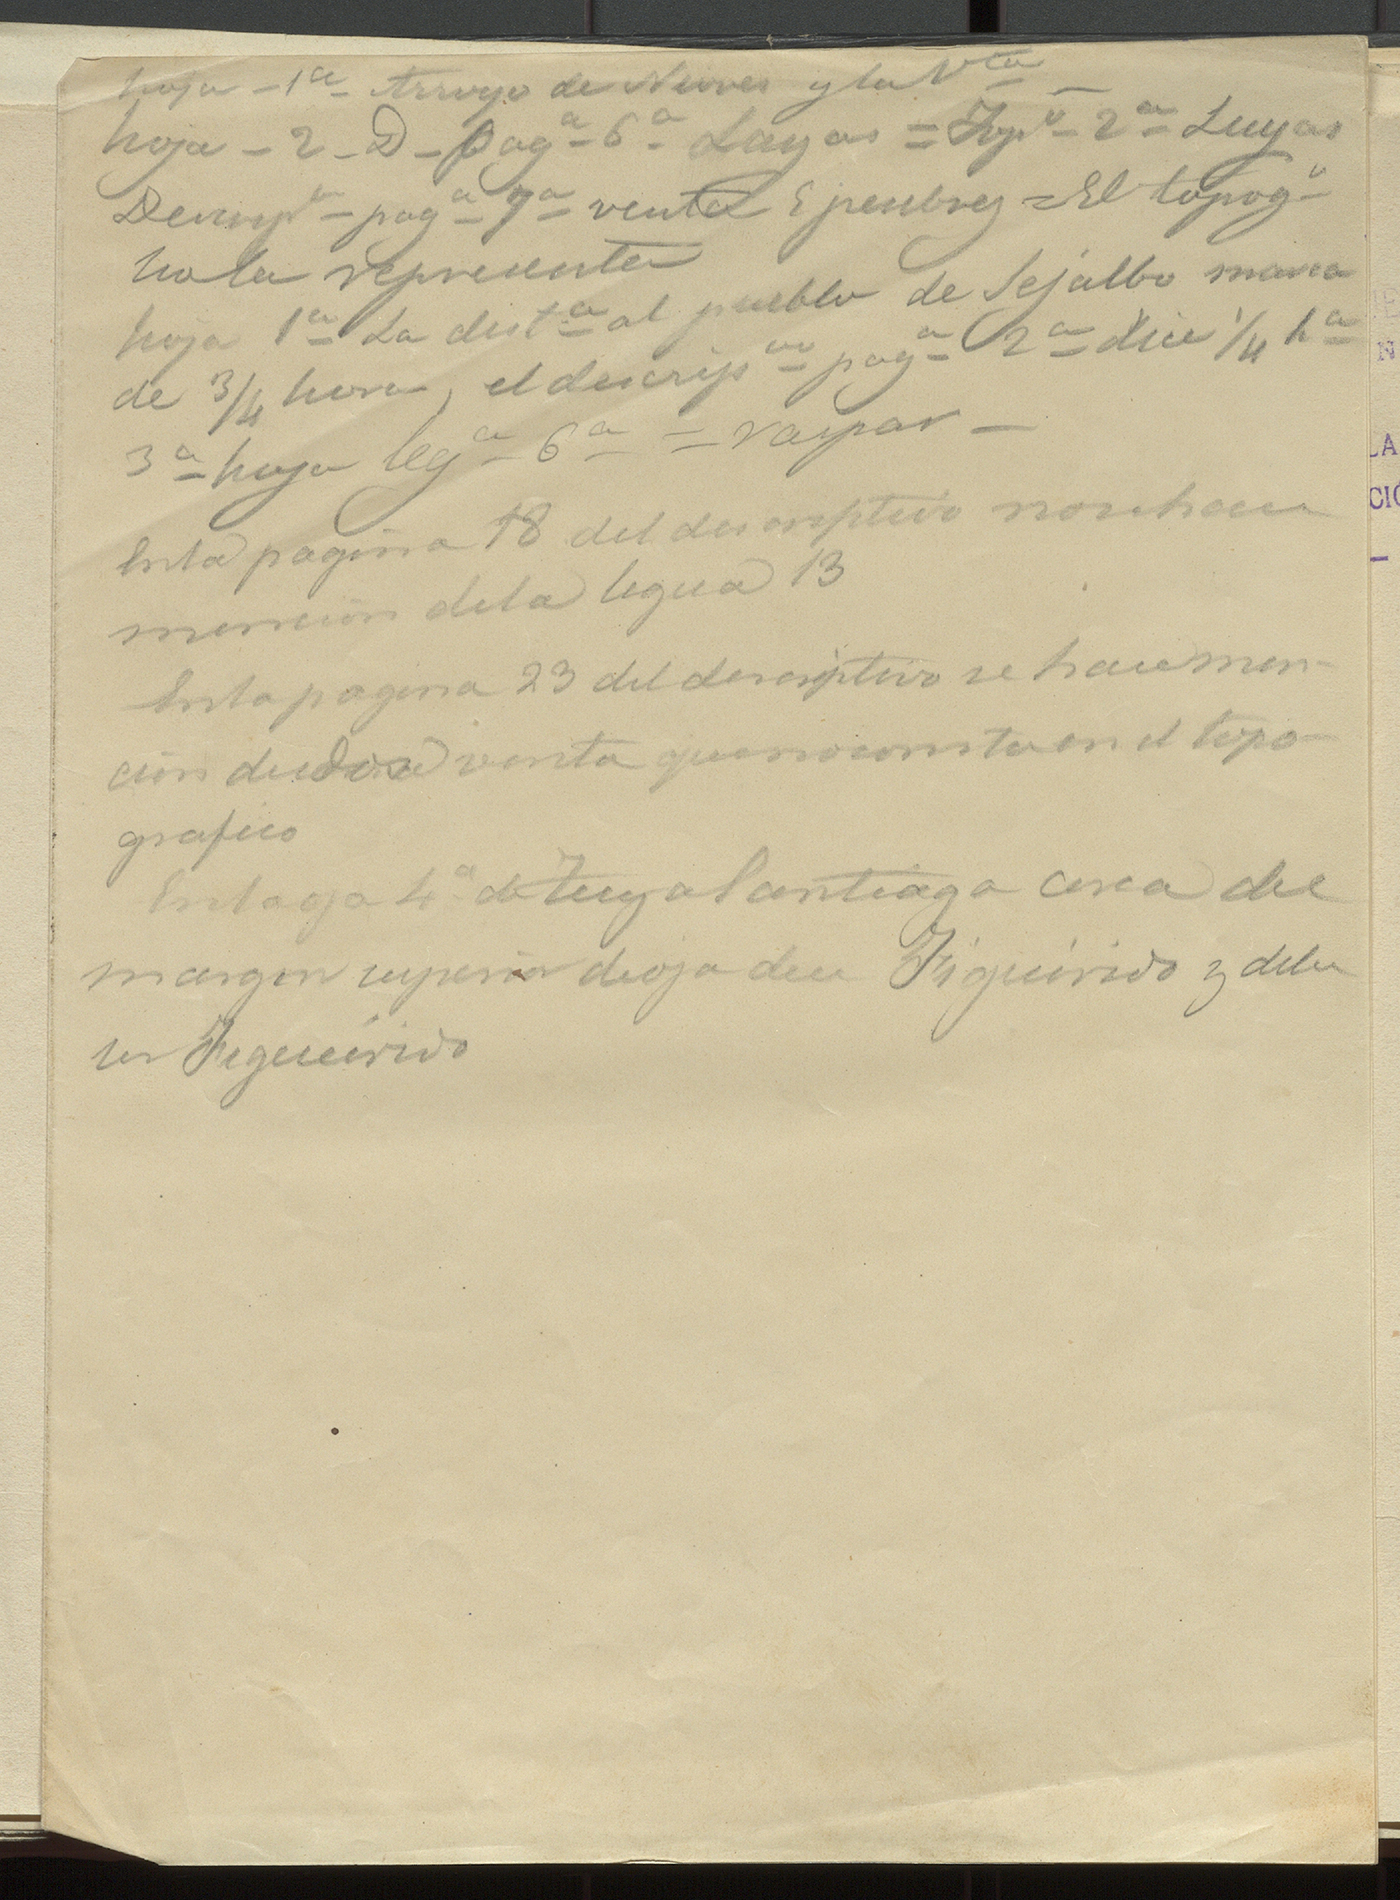 hoja - 1ª Arroyo de Nieves y la Vta
hoja - 2 - D - pagª - 6ª Layas = Topº - 2ª Luyas
Descripº - pagª 7ª venta = El topogº
no la representa
hoja 1ª La distª al pueblo de Sejalbo marca
de 3/4 hora, el descripvo pagª 2ª dice 1/4 hª
3ª hoja legª 6ª = raspar -
En la pagina 18 del descriptivo no se hace
mención de la legua 13
En la pagina 23 del descriptivo se hace men-
ción de venta que no consta en el topo-
grafico
En la oja 4ª de Tuy a Santiago cerca del
margen superior de oja dice Figuirido y debe
ser Figueirido
LA
CIÓ